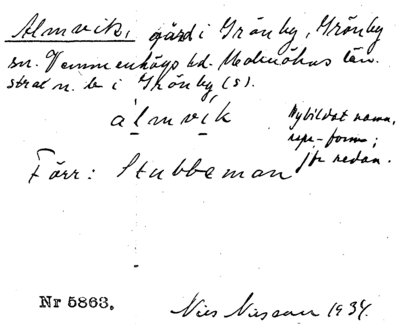 Almvik, gård i Grönby, Grönby
sn. Vemmenhögs hd. Malmöhus län.
strax n. b i Grönby (s).
álmvík
Nybildat namn,
repr-form;
jfr nedan.
Förr: Stubbeman
Nr 5863.
Nils Nilsson 1934.